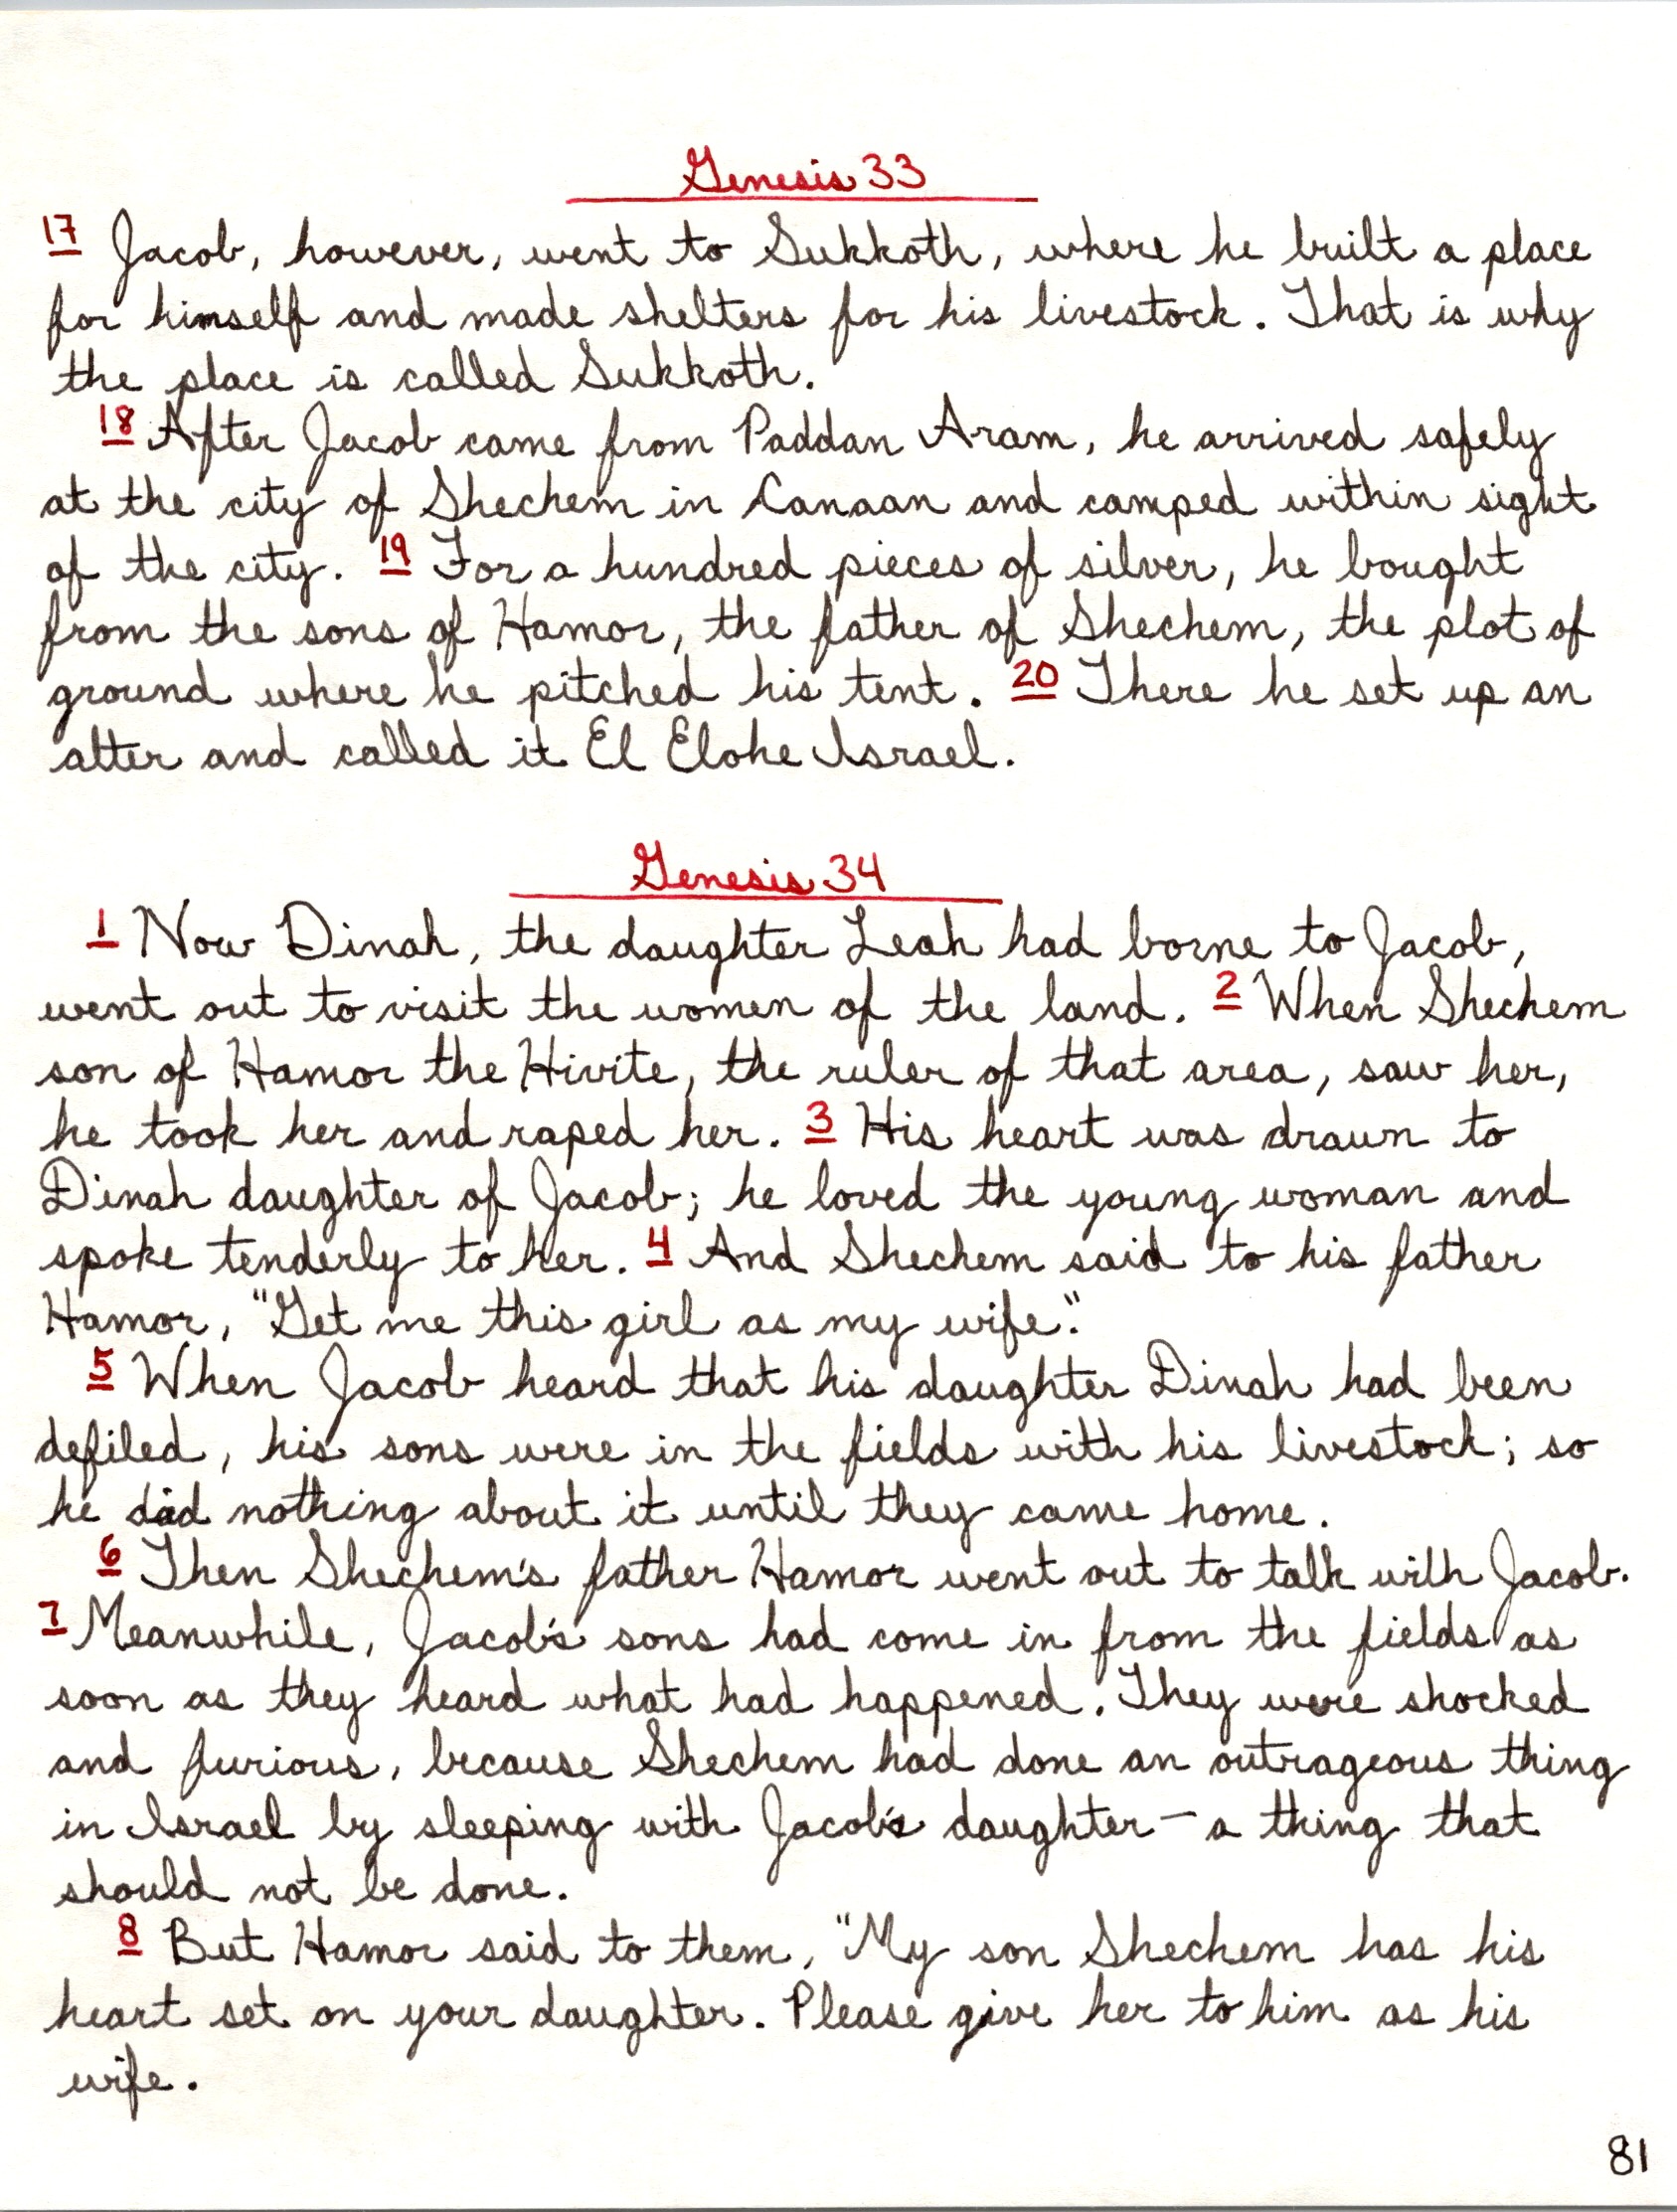 Genesis 33
17 Jacob, however, went to Sukkoth, where he built a place
for himself and made shelters for his livestock. That is why
the place is called Sukkoth.
18 After Jacob came from Paddan Aram, he arrived safely
at the city of Shechem in Canaan and camped within sight
of the city. 19 For a hundred pieces of silver, he bought
from the sons of Hamor, the father of Shechem, the plot of
ground where he pitched his tent. 20 There he set up an
alter and called it El Elohe Israel.
Genesis 34
1 Now Dinah, the daughter Leah had borne to Jacob,
went out to visit the women of the land. 2 When Shechem
son of Hamor the Hivite, the ruler of that area, saw her,
he took her and raped her. 3 His heart was drawn to
Dinah daughter of Jacob; he loved the young woman and
spoke tenderly to her. 4 And Shechem said to his father
Hamor, "Get me this girl as my wife."
5 When Jacob heard that his daughter Dinah had been
defiled, his sons were in the fields with his livestock; so
he did nothing about it until they came home.
6 Then Shechem's father Hamor went out to talk with Jacob.
7 Meanwhile, Jacob's sons had come in from the fields as
soon as they heard what had happened. They were shocked
and furious, because Shechem had done an outrageous thing
in Israel by sleeping with Jacob's daughter – a thing that
should not be done.
8 But Hamor said to them, "My son Shechem has his
heart set on your daughter. Please give her to him as his
wife.
81